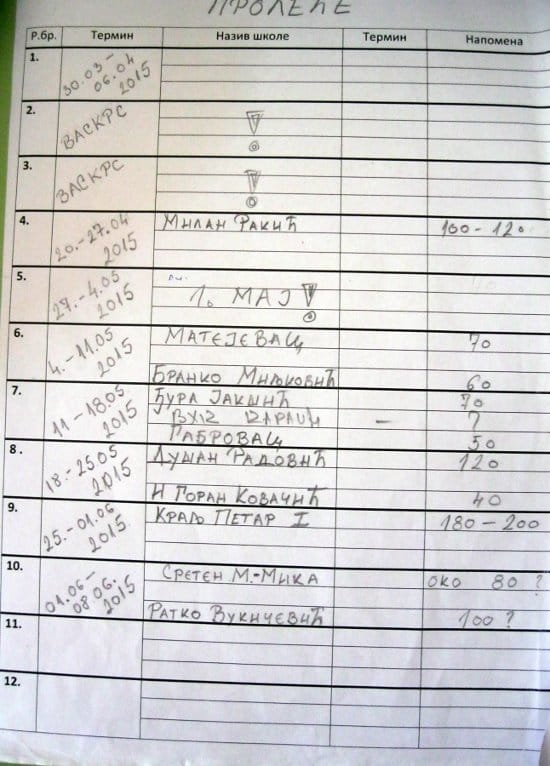 ПРОЛЕЋЕ
Р.бр. Термин Назив школе Термин Напомена
1. 30.03 – 06.04 2015
2. ВАСКРС !
3. ВАСКРС !
4. 20.-27.04 2015 МИЛАН РАКИЋ 100-120
5. 27.-4.05 2015 1. МАЈ !
6. 4.-11.05 2015 МАТЕЈЕВАЦ 70
БРАНКО МИЉКОВИЋ 60
7. 11-18.05 2015 ЂУРА ЈАКШИЋ 70
ВУК КАРАЏИЋ – ?
ГАБРОВАЦ 50
8. 18.-25.05 2015 ДУШАН РАДОВИЋ 120
И ГОРАН КОВАЧИЋ 40
9. 25.-01.06 2015 КРАЉ ПЕТАР I 180 – 200
10. 01.06 – 08.06. 2015 СРЕТЕН М.-МИКА ОКО 80 ?
РАТКО ВУКИЧЕВИЋ 100 ?
11.
12.